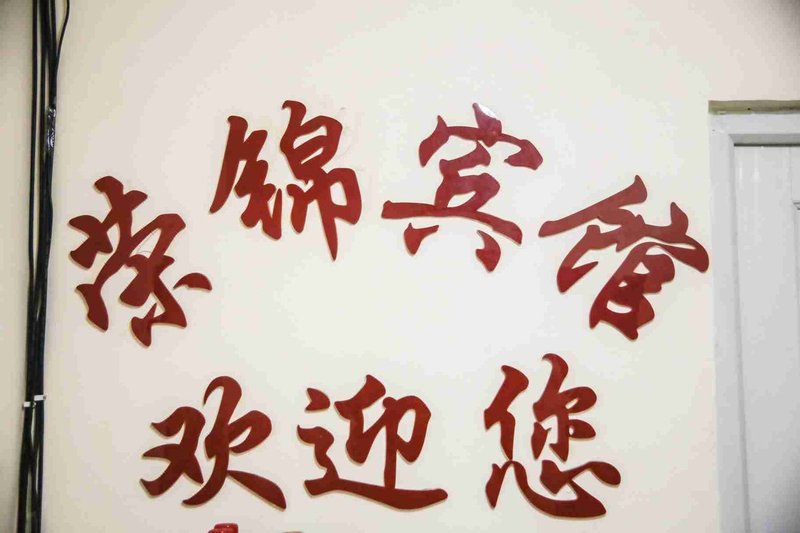 崇锦宾馆
欢迎您